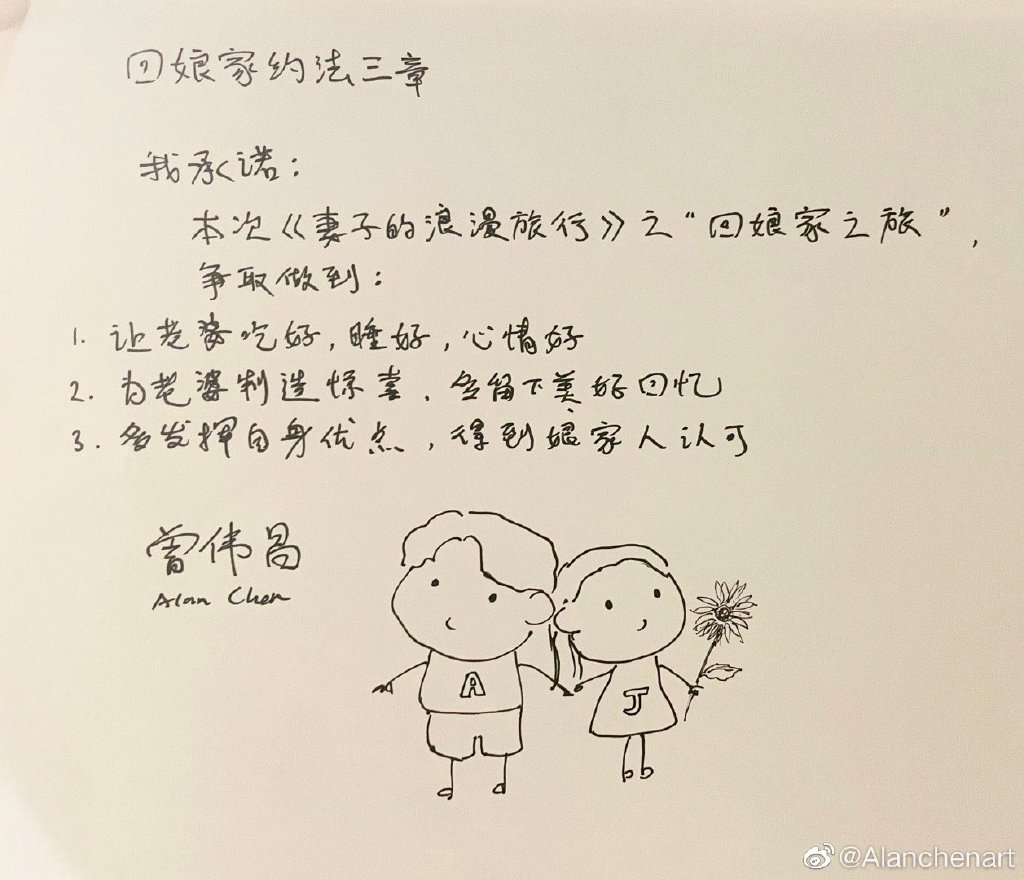 回娘家约法三章
我承诺：
本次《妻子的浪漫旅行》之“回娘家之旅”，
争取做到：
1. 让老婆吃好，睡好，心情好
2. 为老婆制造惊喜、多留下美好回忆
3. 多发挥自身优点，得到娘家人认可
曾伟昌
Alan Chen
A
J
@Alanchenart